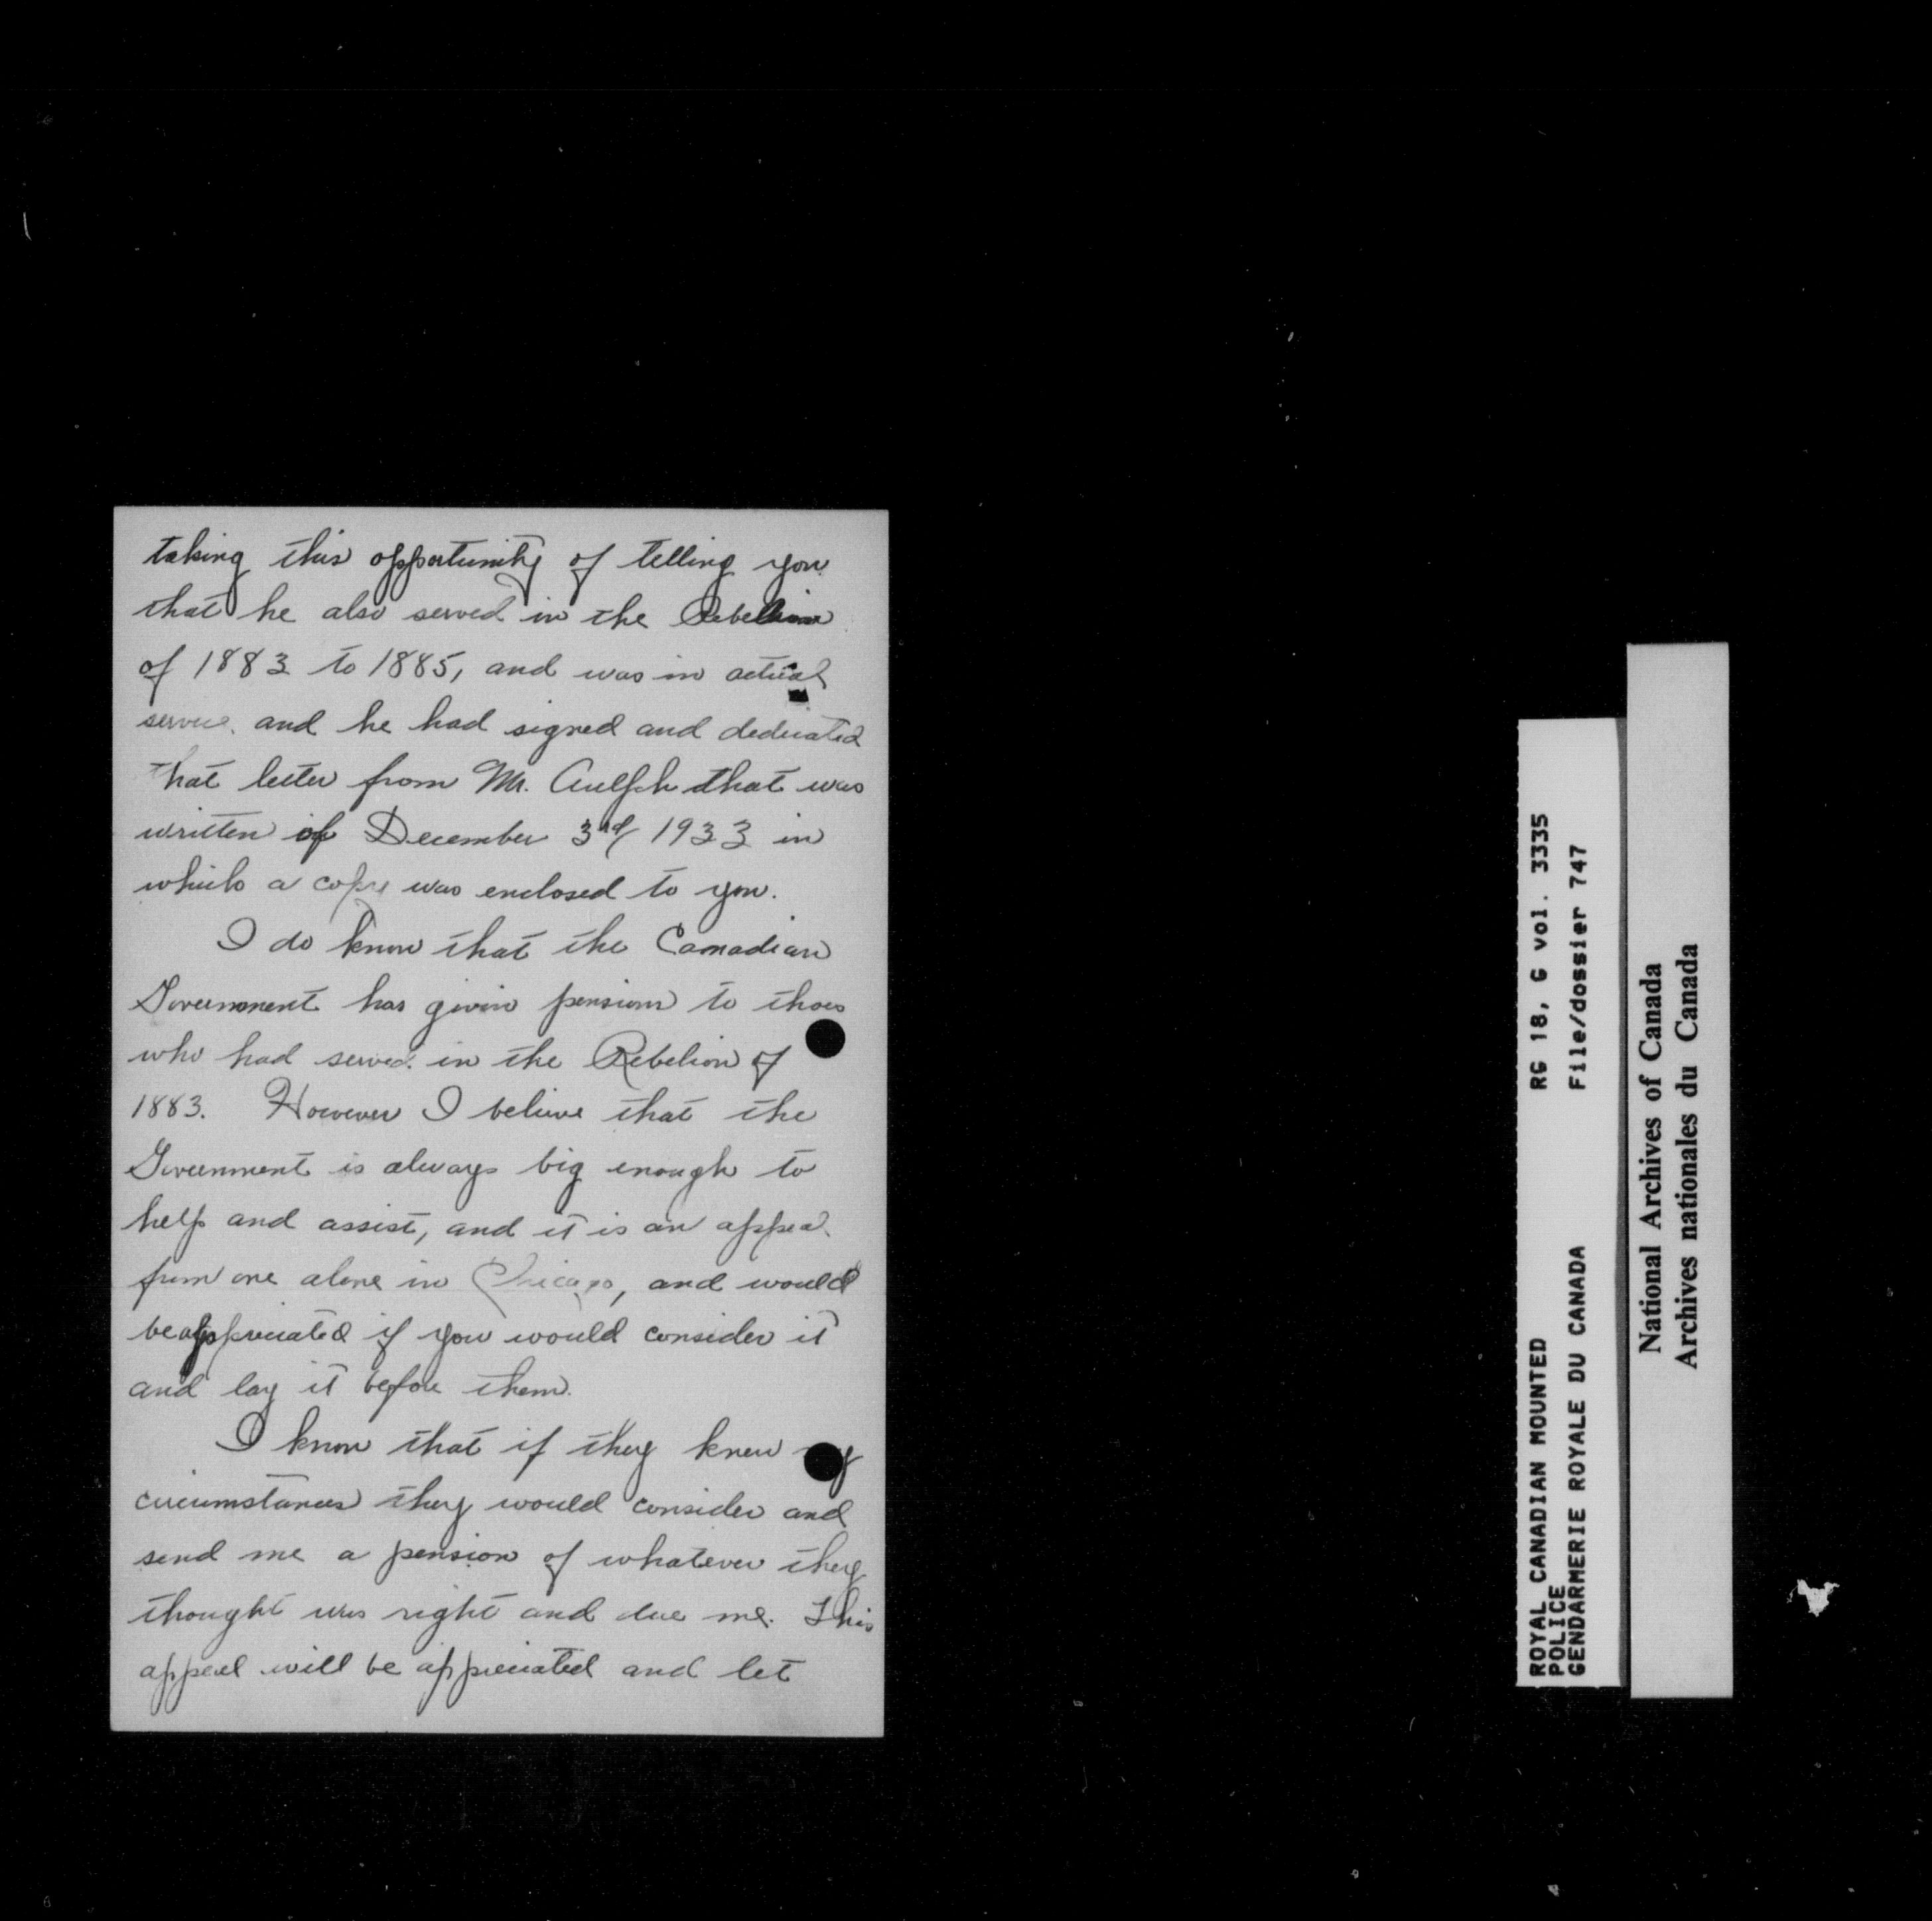 taking this opportunity of telling you
that he also served in the Rebelion
of 1883 to 1885, and was in actual
service and he had signed and dedicated
that letter from Mr. that was
written of December 3rd 1933 in
which a copy was enclosed to you.
I do know that the Canadian
Government has given pension to those
who had served in the Rebelion of
1883. However I believe that the
Government is always big enough to
help and assist, and it is an appeal
from one alone in Chicago, and would
be appreciated if you would consider it
and lay it before them.
I know that if they knew my
circumstances they would consider and
send me a pension of whatever they
thought was right and due me. This
appeal will be appreciated and let
ROYAL CANADIAN MOUNTED RG 18, G vol. 3335
POLICE File/dossier 747
GENDARMERIE ROYALE DU CANADA
National Archives of Canada
Archives nationales du Canada